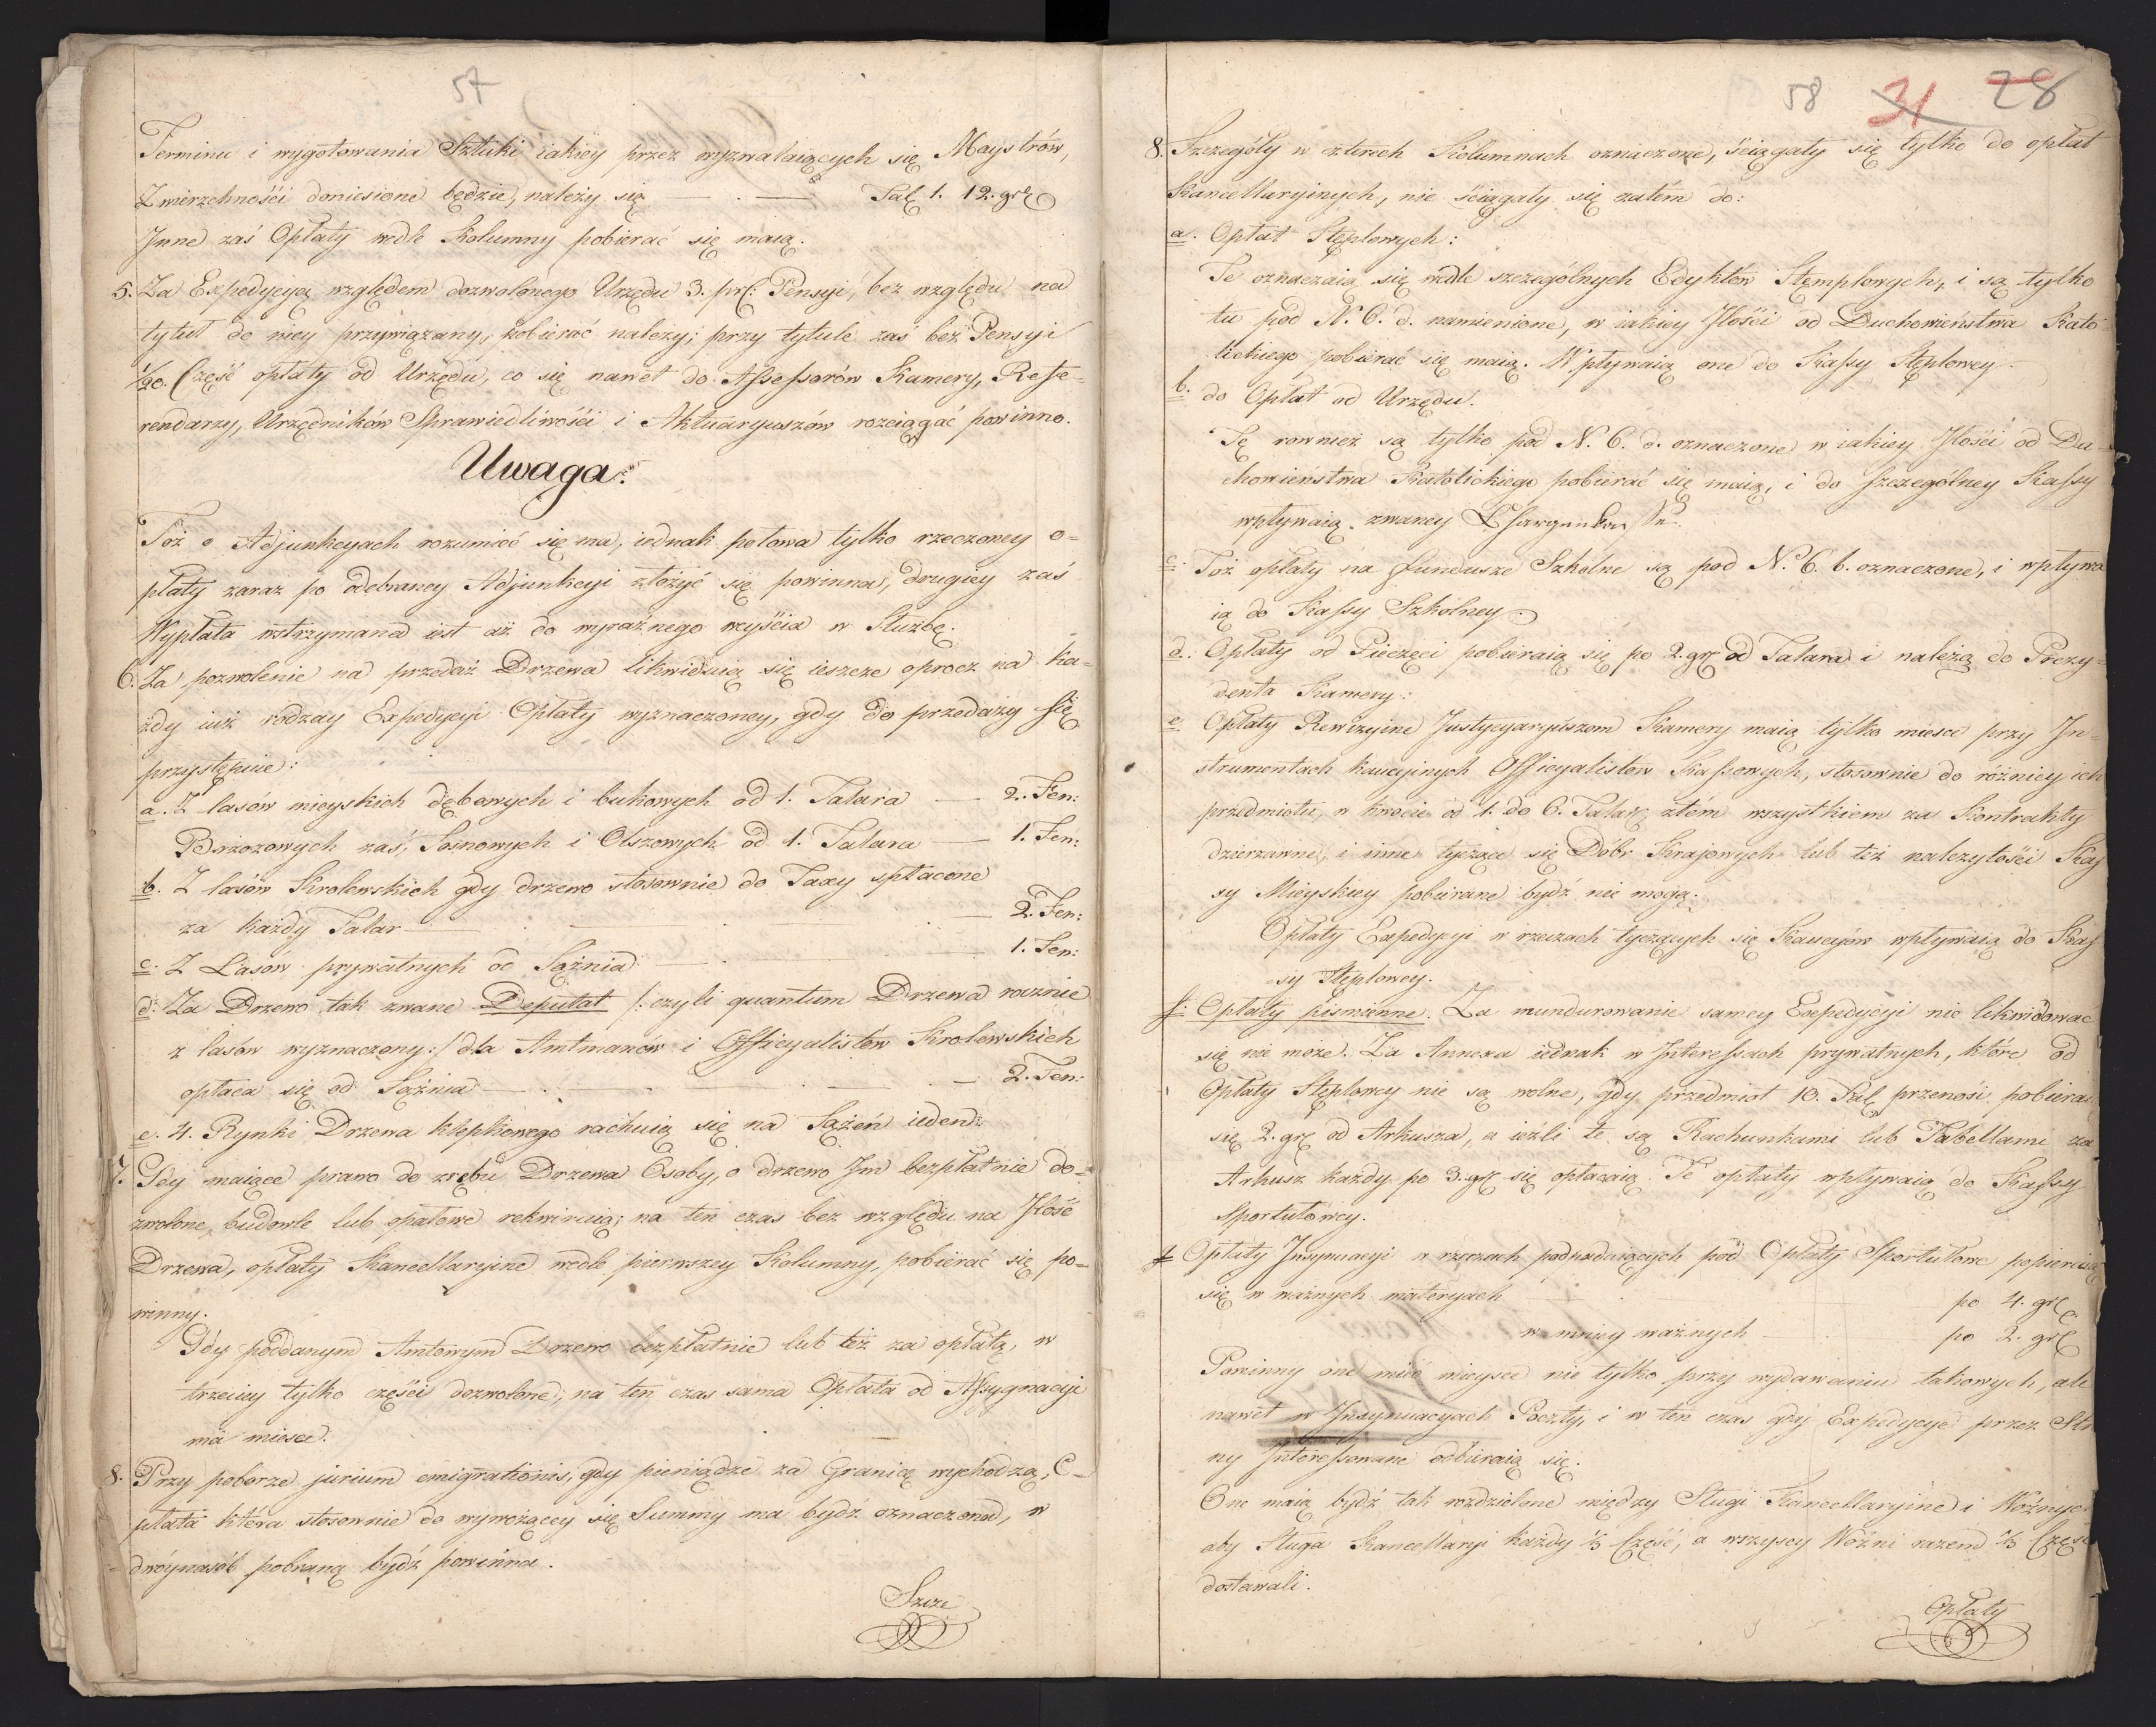 57
Terminu i wygotowania Sztuki iakiey przez wyzwalaiących się Maystrów,
Zwierzchnośći doniesione będzie, należy się — . — Tal. 1. 12. gr.
Jnne zaś Opłaty wedle Kolumny pobierać się maią.
5. Za Expedycyą względem dozwolonego Urzędu 3. prC: Pensyi, bez względu na
tytuł do niey przywiązany, pobierać należy; przy tytule zaś bez Pensyi
1/20. Część opłaty od Urzędu, co się nawet do Assessorów Kamery, Refe=
rendarzy, Urzędników Sprawiedliwośći i Aktuaryuszów rozciągać powinno.
Uwaga:
Toż o Adjunkcyach rozumieć się ma, iednak połowa tylko rzeczoney o=
płaty zaraz po odebraney Adjunkcyi złożyć się powinna, drugiey zaś
Wypłata wstrzymana iest aż do wyraźnego weyśćia w Służbę.
6. Za pozwolenie na przedaż Drzewa likwiduią się ieszcze oprocz na ka=
żdy iuż rodzay Expedycyi Opłaty wyznaczoney, gdy do przedaży się
przystępuie:
a. Z lasów mieyskich dębowych i bukowych od 1. Talara — 2. Fen:
Brzozowych zaś, Sosnowych i Olszowych od 1. Talara — 1. Fen:
b. Z lasów Krolewskich gdy drzewo stosownie do Taxy spłacone
za każdy Talar — 2. Fen:
c. Z Lasów prywatnych od Sążnia — 1. Fen:
d. Za Drzewo tak zwane Deputat /: czyli quantum Drzewa rocznie
z lasów wyznaczony :/ dla Amtmanów i Officyalistów Krolewskich
opłaca się od Sążnia — 2. Fen:
e. 4. Rynki Drzewa klepkowego rachuią się na Sążeń ieden.
7. Gdy maiące prawo do zrębu Drzewa Osoby, o drzewo Jm bezpłatnie do=
zwolone, budowle lub opałowe rekwiruią; na ten czas bez względu na Jlość
Drzewa, opłaty Kancellaryine wedle pierwszey Kolumny, pobierać się po=
winny.
Gdy poddanym Amtowym Drzewo bezpłatnie lub też za opłatą, w
trzeciey tylko części dozwolone, na ten czas sama Opłata od Assygnacyi
ma miesce.
8. Przy poborze jurium emigrationis, gdy pieniądze za Granicę wychodzą, O=
płata która stosownie do wywożącey się Summy ma bydź oznaczona, w
dwóynasób pobraną bydź powinna.
Szcze
58 31 28
8. Szczegóły w czterech Kolumnach oznaczone, śćiągały się tylko do opłat
Kancellaryinych, nie śćiągały się zatém do:
a. Opłat Stęplowych:
Te oznaczaią się wedle szczególnych Edyktów Stęmplowych, i są tylko
tu pod N. 6. d. namienione, w iakiey Jlośći od Duchowieństwa Kato
lickiego pobierać się maią. Wpływaią one do Kassy Stęplowey.
b. do Opłat od Urzędu.
Tę rownież są tylko pod N. 6. d. oznaczone w iakiey Jlośći od Du
chowieństwa Katolickiego pobierać się maią, i do szczególney Kassy
wpływaią, zwaney
c. Toż opłaty na fundusze Szkolne są pod N. 6. b. oznaczone, i wpływa
ią do Kassy Szkolney
d. Opłaty od Pieczęci pobieraią się po 2. gr. od Talara i należą do Prezy=
denta Kamery:
e. Opłaty Rewizyine Justycyaryuszom Kamery maią tylko miesce przy Jn=
strumentach kaucyinych Officyalistów Kassowych, stosownie do różnicy ich
przedmiotu, w kwocie od 1. do 6. Talar, ztém wszystkiem za Kontrakty
dzierzawne, i inne tyczące się Dóbr Krajowych lub też należytośći Kas
sy Mieyskiey pobierane bydź nie mogą.
Opłaty Expedycyi w rzeczach tyczących się Kaucyów wpływaią do Kas
sy Stęplowey.
f. Opłaty piśmienne. Za mundurowanie samey Expedycyi nic likwidować
się nie może. Za Annexa iednak w Jnteressach prywatnych, które od
Opłaty Stęplowey nie są wolne, gdy przedmiot 10. Tal. przenosi pobiera
się 2. gr. od Arkusza, a ieźli te są Rachunkami lub Tabellami za
Arkusz każdy po 3. gr. się opłacaią. Te opłaty wpływaią do Kassy
Sportulowey.
Opłaty Jnsynuacyi w rzeczach podpadaiących pod Opłaty Sportulowe
się w ważnych materyach — po 4. gr.
w mniey ważnych — po 2. gr.
Powinny one mieć mieysce nie tylko przy wydawaniu takowych, ale
nawet w Jnsynuacyach Poczty, i w ten czas gdy Expedycye przez Stro
ny Jnteressowane odbieraią się.
One maią bydź tak rozdzielone między Sługi Kancellaryine i Woźnych
aby Sługa Kancellaryi każdy 1/3 Część, a wszyscy Woźni razem 1/3 Część
dostawali.
Opłaty